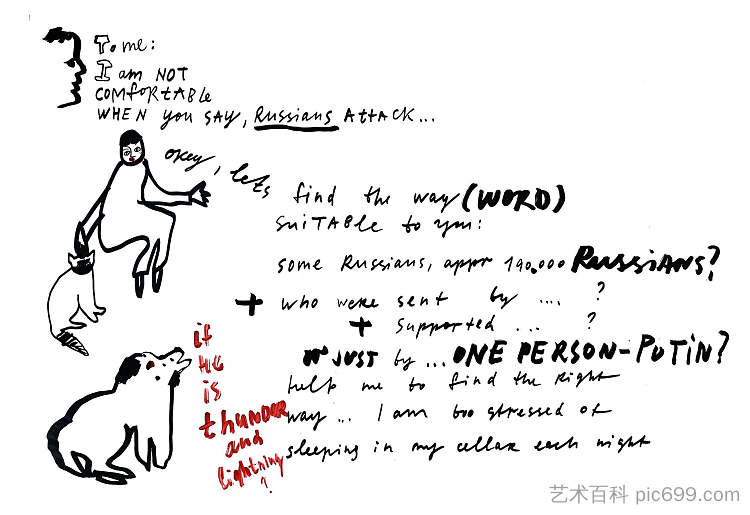 To me:
I am NOT
COMFORTABLE
WHEN you SAY, Russians ATTACK...
okey, lets
find the way (WORD)
SUITABLE to you:
some Russians, appr 190.000 RUSSIANS?
+ who were sent by .... ?
+ supported ... ?
JUST by ... ONE PERSON-PUTIN?
help me to find the Right
way ... I am too stressed of
sleeping in my cellar each night
if
HE
is
thunder
and
lightning
?
艺术百科 pic699.com